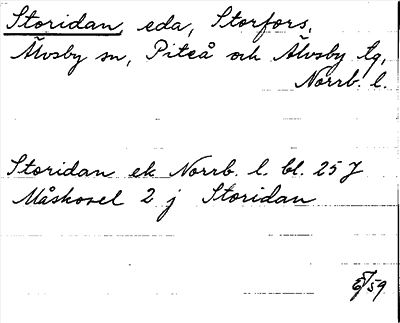 Storidan, eda, Storfors,
Älvsby sn, Piteå och Älvsby tg,
Norrb. l.
Storidan ek Norrb. l. bl. 25 J
Måskosel 2 j Storidan
59